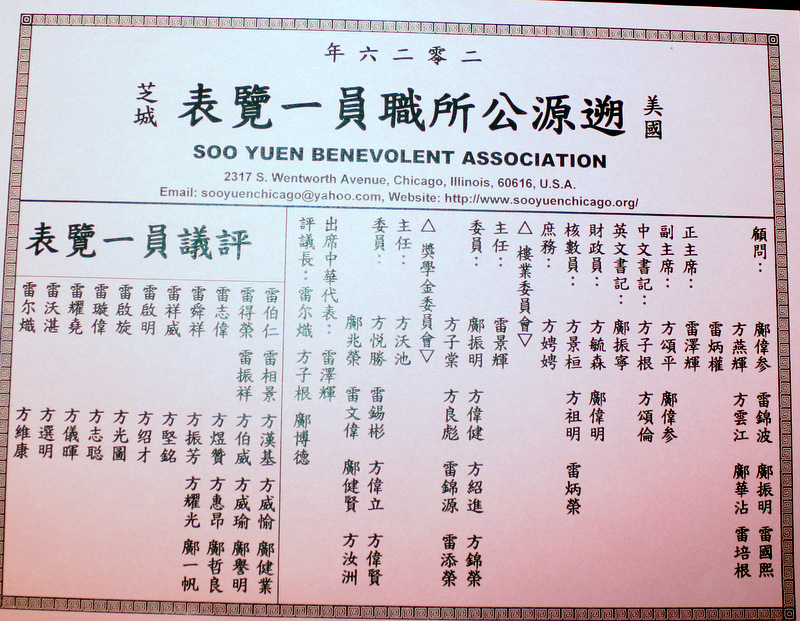 二零二六年
美國
遡源公所職員一覽表
芝城
SOO YUEN BENEVOLENT ASSOCIATION
2317 S. Wentworth Avenue, Chicago, Illinois, 60616, U.S.A.
Email: sooyuenchicago@yahoo.com, Website: http://www.sooyuenchicago.org/
顧問： 鄺偉参 雷錦波 鄺振明 雷國熙
方燕輝 方雲江 鄺華沾 雷培根
雷炳權
正主席： 雷澤輝
副主席： 方頌平 鄺偉参
中文書記： 方子根 方頌倫
英文書記： 鄺振寧
財政員： 方毓森 鄺偉明
核數員： 方景桓 方祖明 雷炳榮
庶務： 方娉娉
△樓業委員會▽
主任： 雷景輝
委員： 鄺振明 方偉健 方紹進 方錦榮
方子棠 方良彪 雷錦源 雷添榮
△獎學金委員會▽
主任： 方沃池
委員： 方悦勝 雷錫彬 方偉立 方偉賢
鄺兆榮 雷文偉 鄺健賢 方汝洲
出席中華代表： 雷澤輝
評議長： 雷尔熾 方子根 鄺博德
評議員一覽表
雷伯仁 雷相景 方漢基 方威愉 鄺健業
雷得榮 雷振祥 方伯威 方威瑜 鄺譽明
雷志偉 方煜贊 方惠昂 鄺哲良
雷舜祥 方振芳 方耀光 鄺一帆
雷祥威 方堅銘
雷啟明 方绍才
雷啟旋 方光圖
雷璇偉 方志聪
雷耀堯 方儀暉
雷沃湛 方選明
雷尔熾 方維康